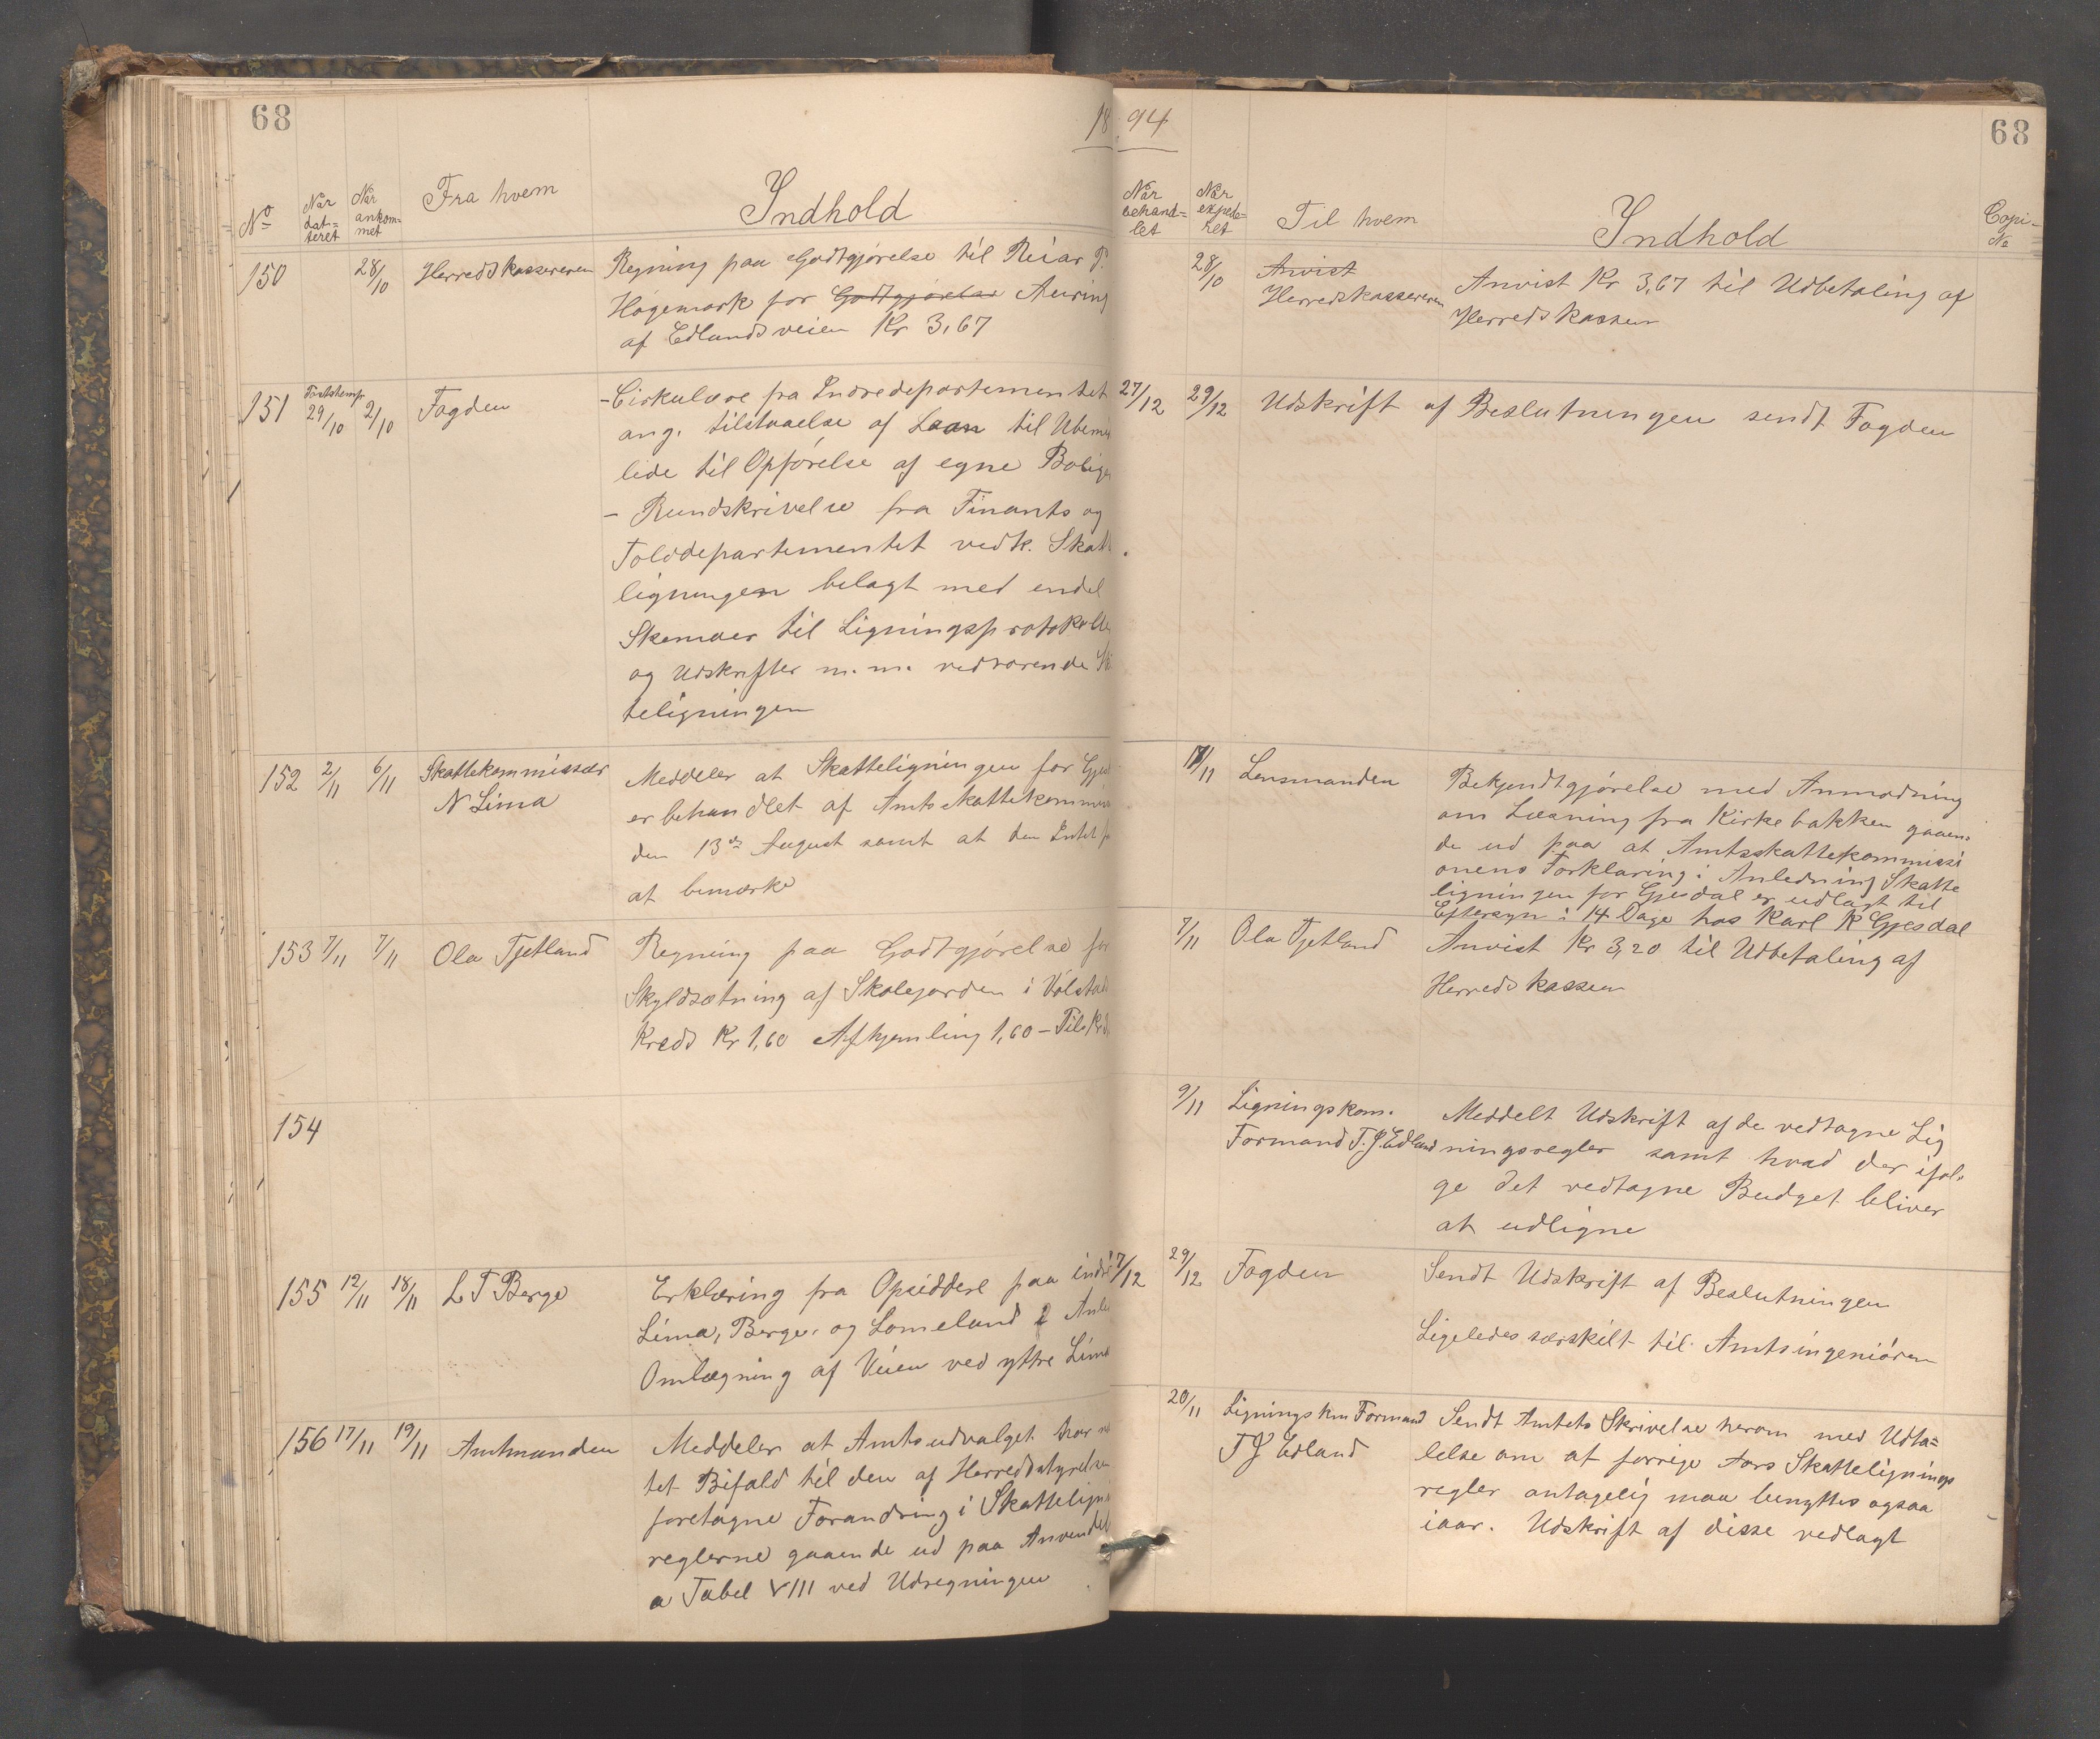 68
1894
68
No
Når dat=
teret
Når
ankom=
met
Fra hvem
Indhold
Når
behand=
let
Når
expede=
ret
Til hvem
Indhold
Copi-
No
150
28/10
Herredskassereren
Regning paa Godtgjørelse til Reiar
Høgemark for Godtgjørelse Auring
af Edlandsveien Kr 3,67
28/10
Anvist
Herredskassereren
Anvist Kr 3,67 til Udbetaling af
Herredskassen
151
29/10
2/10
Fogden
- Cirkulære fra Indredepartementet
ang. tilstaaelse af Laan til Ubemid
lede til Opførelse af egne Bolige
- Rundskrivelse fra Finants og
Tolddepartementet vedk. Skatt
ligningen belagt med endel
Skemaer til Ligningsprotokolle
og Udskrifter m.m. vedrørende
teligningen
27/12
29/12
Udskrift af Beslutningen sendt Fogden
152
2/11
6/11
Skattekommissær
N Lima
Meddeler at Skatteligningen for Gjes
er behandlet af Amtsskattekommis
den 13de August samt at den Intet
at bemærke
/11
Lensmanden
Bekjendtgjørelse med Anmodning
om Læsning fra Kirkebakken gaaen-
de ud paa at Amtsskattekommissi
onens Forklaring i Anledning Skatte
ligningen for Gjesdal er udlagt til
Eftersyn i 14 Dage hos Karl K Gjesdal
153
7/11
7/11
Ola Tjetland
Regning paa Godtgjørelse for
Skyldsætning af Skolejorden i Vølstad
Kreds Kr 1,60 Afhjemling 1,60 - Tils Kr
7/11
Ola Tjetland
Anvist Kr 3,20 til Udbetaling af
Herredskassen
154
9/11
Ligningskom.
Formand T.J. Edland
Meddelt Udskrift af de vedtagne Lig
ningsregler samt hvad der iføl-
ge det vedtagne Budget bliver
at udligne
155
12/11
18/11
L T Berge
Erklæring fra Opsiddere paa indre
Lima, Berge, og Lomeland i Anle
Omlægning af Veien ved yttre Lima
7/12
29/12
Fogden
Sendt Udskrift af Beslutningen
Ligeledes særskilt til Amtsingeniøren
156
17/11
19/11
Amtmanden
Meddeler at Amtsudvalget har
tet Bifald til den af Herredsstyrelsen
foretagne Forandring i Skatteligni
reglerne gaaende ud paa Anvendel
a Tabel VIII ved Udregningen
20/11
Lignings kom Formand
T J Edland
Sendt Amtets Skrivelse herom med Udta=
lelse om at forrige Aars Skattelignings
regler antagelig maa benyttes ogsaa
iaar. Udskrift af disse vedlagt